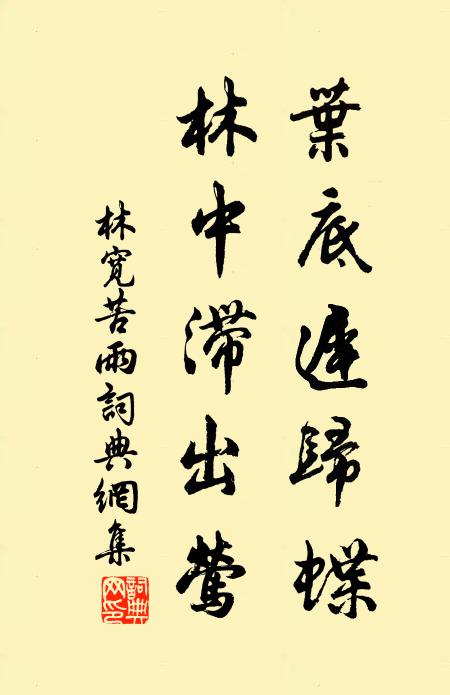 葉底遲歸蝶
林中滯出鶯
林寬苦雨詞典網集
詞典網印